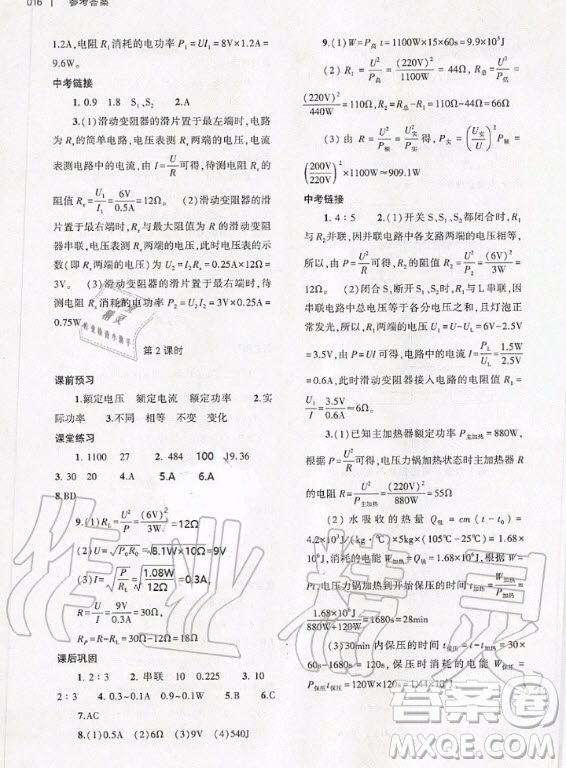 016 | 参考答案
1.2A,电阻 R₁ 消耗的电功率 P₁ = UI₁ = 8V×1.2A =
9.6W。
中考链接
1. 0.9 1.8 S₁、S₂ 2.A
3.(1)滑动变阻器的滑片置于最左端时,电路
为 Rₓ 的简单电路,电压表测 Rₓ 两端的电压,电流
表测电路中的电流,由 I = U/R 可得,待测电阻 Rₓ 的
阻值 Rₓ = U₁/I₁ = 6V/0.5A = 12Ω。 (2)滑动变阻器的滑
片置于最右端时, Rₓ 与最大阻值的滑动变阻器的电
阻器串联,电压表测 Rₓ 两端的电压,电压表的示
数(即 Rₓ 两端的电压) U₂ = I₂Rₓ = 0.25A×12Ω =
3V。 (3)滑动变阻器的滑片置于最右端时,待测
电阻 Rₓ 消耗的电功率 P₂ = U₂I₂ = 3V×0.25A =
0.75W
第 2 课时
课前预习
1.额定电压 额定电流 额定功率 2.实
际功率 3.不同 相等 不变 变化
课堂练习
1. 1100 27 2. 484 100 19.36
3. 30 20 4.A 5.A 6.A
8.BD
9.(1)R_L = U²/P = (6V)²/3W = 12Ω
(2)U = √P₀R₀ = √8.1W×10Ω = 9V
(3)I = √P/R_L = √1.08W/12Ω = 0.3A,
R = U/I = 9V/0.3A = 30Ω,
R_P = R − R_L = 30Ω−12Ω = 18Ω
课后巩固
1. 2∶3 2.串联 10 0.025 3. 3∶2
2∶3 4. 0.3~0.1A 0.9~0.1W 5.A 6.A
7.AC
8.(1)0.5A (2)6Ω (3)9V (4)540J
9.(1)W = P高 t = 1100W×15×60s = 9.9×10⁵J
(2) R₁ = U²/P高 = (220V)²/1100W = 44Ω, R总 = U²/P低 =
(220V)²/440W = 110Ω, R₂ = R总−R₁ = 110Ω−44Ω = 66Ω
(3)由 R = U²/P 可得, P实 = (U实/U)² P额 =
(200V/220V)² ×1100W ≈ 909.1W
中考链接
1. 4∶5 2.(1)开关 S、S₁、S₂ 都闭合时, R₁
被短路,因并联电路中各支路两端的电压相等,
所以,由 P = U²/R 可得, R₂ 的阻值 R₂ = U²/P₂ = (6V)²/3W =
12Ω。 (2)闭合 S、断开 S₁、S₂, R₁ 与 L 串联,因
串联电路中总电压等于各分电压之和,且灯泡正
常发光,所以, R₁ 两端的电压 U₁ = U−U_L = 6V−2.5V =
3.5V,由 P = UI 可得,电路中的电流 I = P_L/U_L = 1.5W/2.5V =
0.6A,此时滑动变阻器接入电路的电阻值 R₁ =
U₁/I = 3.5V/0.6A ≈ 5.8Ω。
3.(1)已知主加热器额定功率 P主加热 = 880W,
根据 P = U²/R 可得,电压力锅加热状态时主加热器的
电阻 R = U²/P主加热 = (220V)²/880W = 55Ω
(2)水吸收的热量 Q吸 = cm(t−t₀) =
4.2×10³J/(kg·℃)×5kg×(105℃−25℃) = 1.68×
10⁶J,消耗的电能 W = Q吸 = 1.68×10⁶J
1.68×10⁶J/880W+120W = 1680s = 28min
(3)30min 内保压的时间 t保压 = t−t加热 = 30×
60s−1680s = 120s,保压时消耗的电能 W保压 =
P保压t保压 = 120W×120s = 1.44×10⁴J
作业精灵
答案圈
MXQE.COM